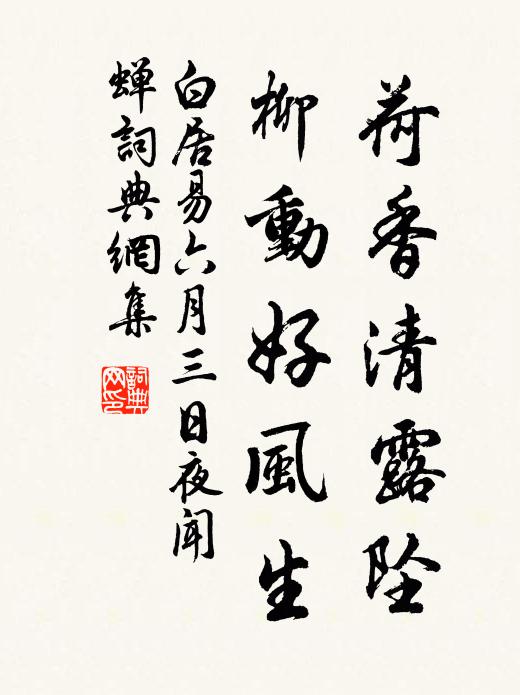 荷香清露墜
柳動好風生
白居易六月三日夜聞
蟬詞典網集
詞典
网印